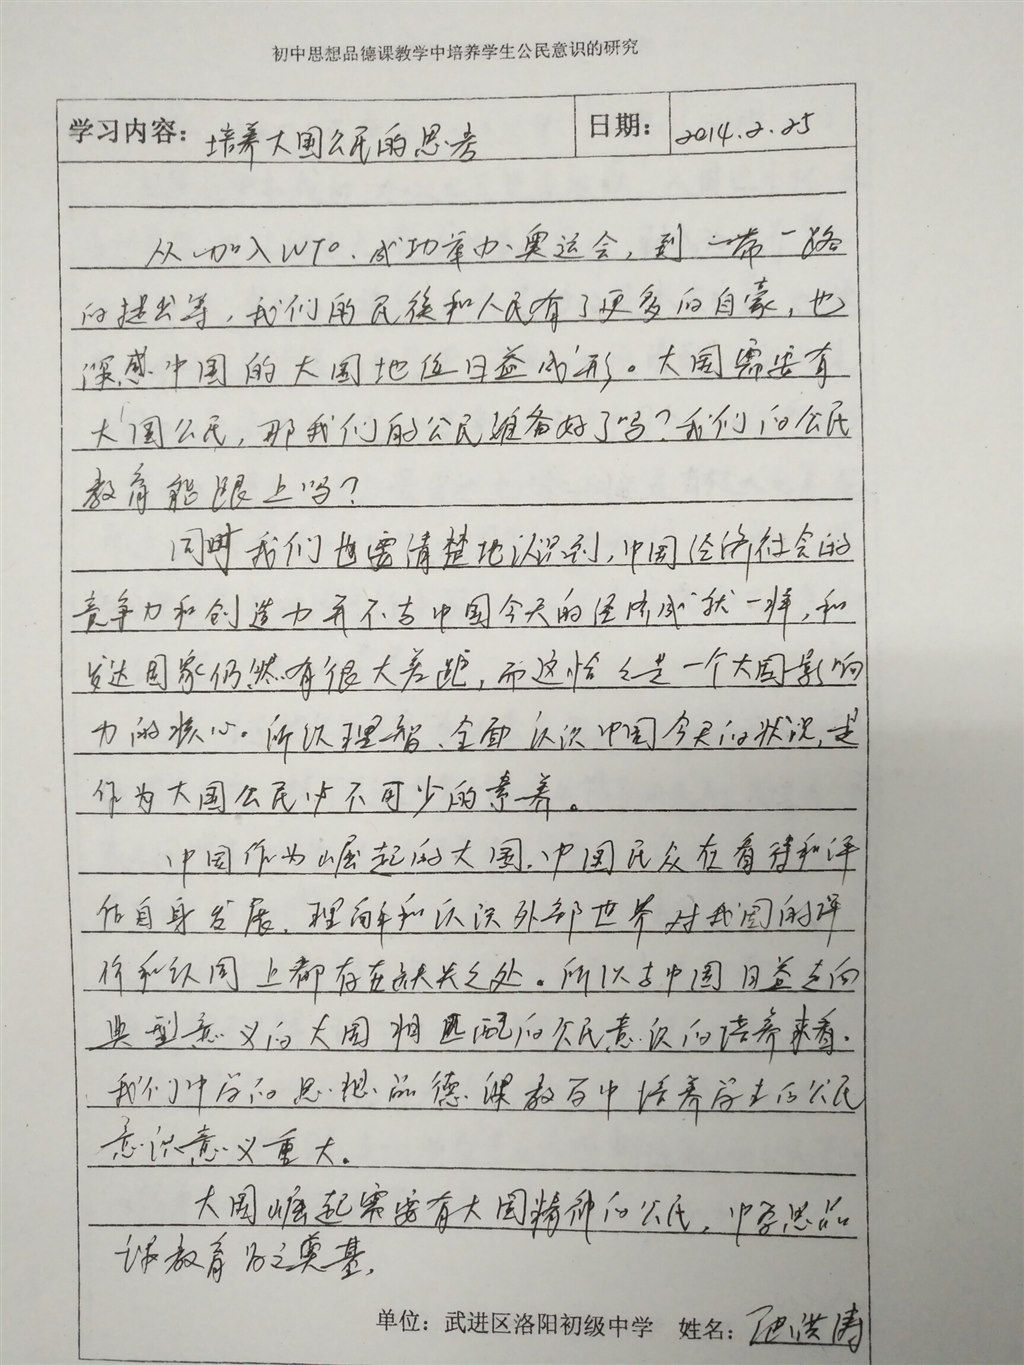 初中思想品德课教学中培养学生公民意识的研究
学习内容：培养大国公民的思考 日期：2014.2.25
从加入WTO、成功举办奥运会，到一带一路
的提出等，我们的民族和人民有了更多的自豪，也
深感中国的大国地位日益成形。大国需要有
大国公民，那我们的公民准备好了吗？我们的公民
教育能跟上吗？
同时我们也要清楚地认识到，中国经济社会的
竞争力和创造力并不与中国今天的经济成就一样，和
发达国家仍然有很大差距，而这恰恰是一个大国影响
力的核心。所以理智、全面认识中国今天的状况，是
作为大国公民必不可少的素养。
中国作为崛起的大国，中国民众在看待和评
估自身发展、理解和认识外部世界对我国的评
价和认同上都存在缺失之处。所以与中国日益走向
典型意义的大国相匹配的公民意识的培养来看，
我们中学的思想品德课教学中培养学生的公民
意识意义重大。
大国崛起需要有大国精神的公民，中学思品
课教育为之奠基。
单位：武进区洛阳初级中学 姓名：洪涛